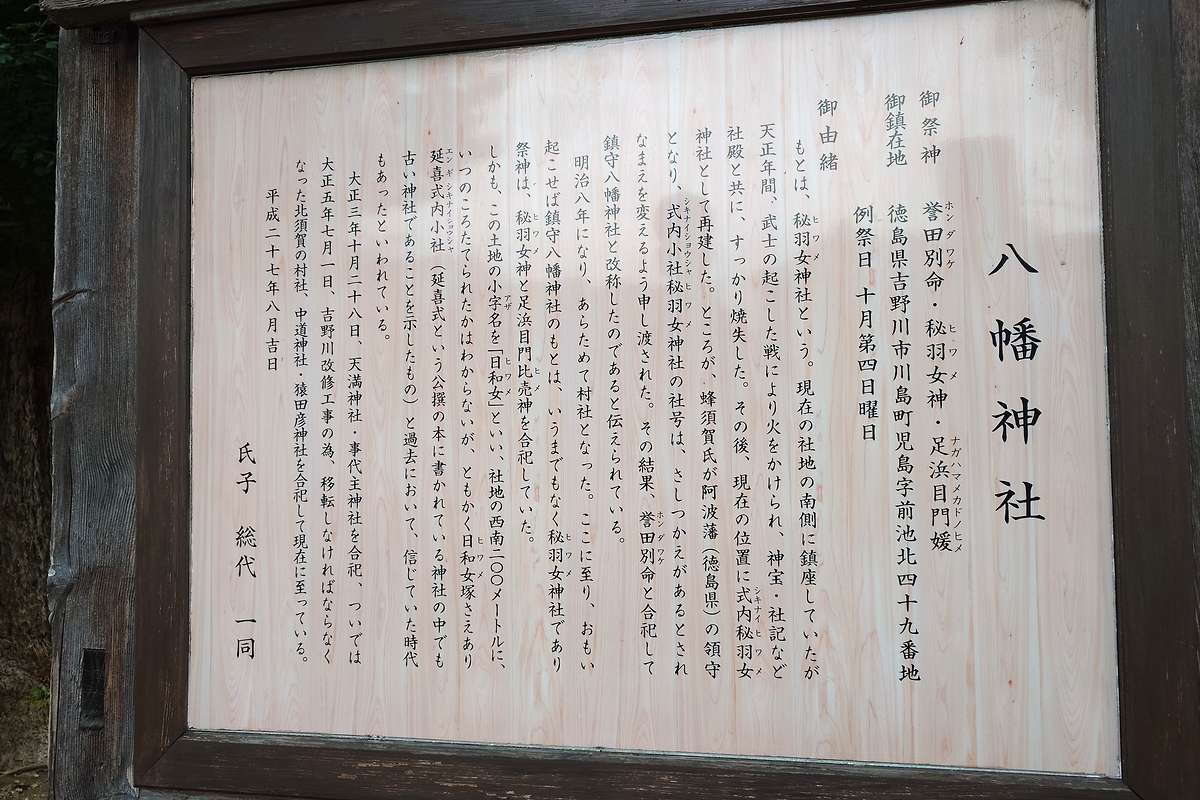 八幡神社
御祭神　誉田別命・秘羽女神・足浜目門媛
御鎮在地　徳島県吉野川市川島町児島字前池北四十九番地
例祭日　十月第四日曜日
御由緒
もとは、秘羽女神社という。現在の社地の南側に鎮座していたが
天正年間、武士の起こした戦により火をかけられ、神宝・社記など
社殿と共に、すっかり焼失した。その後、現在の位置に式内秘羽女
神社として再建した。ところが、蜂須賀氏が阿波藩（徳島県）の領守
となり、式内小社秘羽女神社の社号は、さしつかえがあるとされ
なまえを変えるよう申し渡された。その結果、誉田別命と合祀して
鎮守八幡神社と改称したのであると伝えられている。
明治八年になり、あらためて村社となった。ここに至り、おもい
起こせば鎮守八幡神社のもとは、いうまでもなく秘羽女神社であり
祭神は、秘羽女神と足浜目門比売神を合祀していた。
しかも、この土地の小字名を「日和女」といい、社地の西南二〇〇メートルに、
いつのころたてられたかはわからないが、ともかく日和女塚さえあり
延喜式内小社（延喜式という公撰の本に書かれている神社の中でも
古い神社であることを示したもの）と過去において、信じていた時代
もあったといわれている。
大正三年十月二十八日、天満神社・事代主神社を合祀、ついでは
大正五年七月一日、吉野川改修工事の為、移転しなければならなく
なった北須賀の村社、中道神社・猿田彦神社を合祀して現在に至っている。
平成二十七年八月吉日
氏子　総代　一同